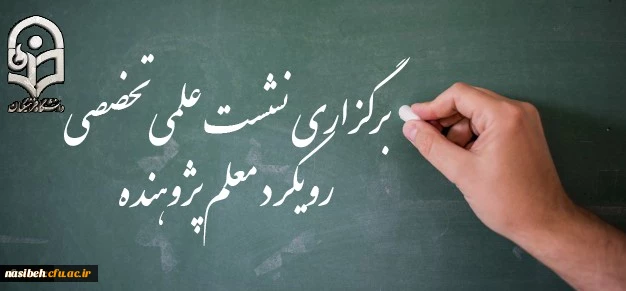 دانشگاه فرهنگیان
برگزاری نشست علمی تخصصی
رویکرد معلم پژوهنده
nasibeh.cfu.ac.ir